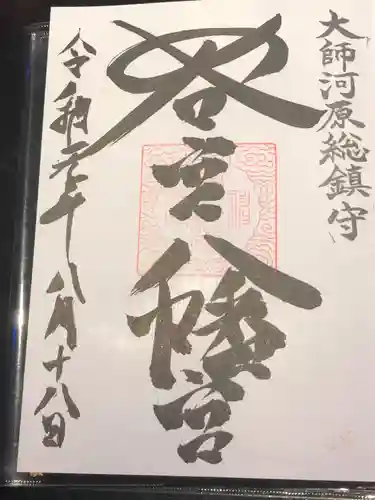 大師河原総鎮守
若宮八幡宮
令和元年八月十八日